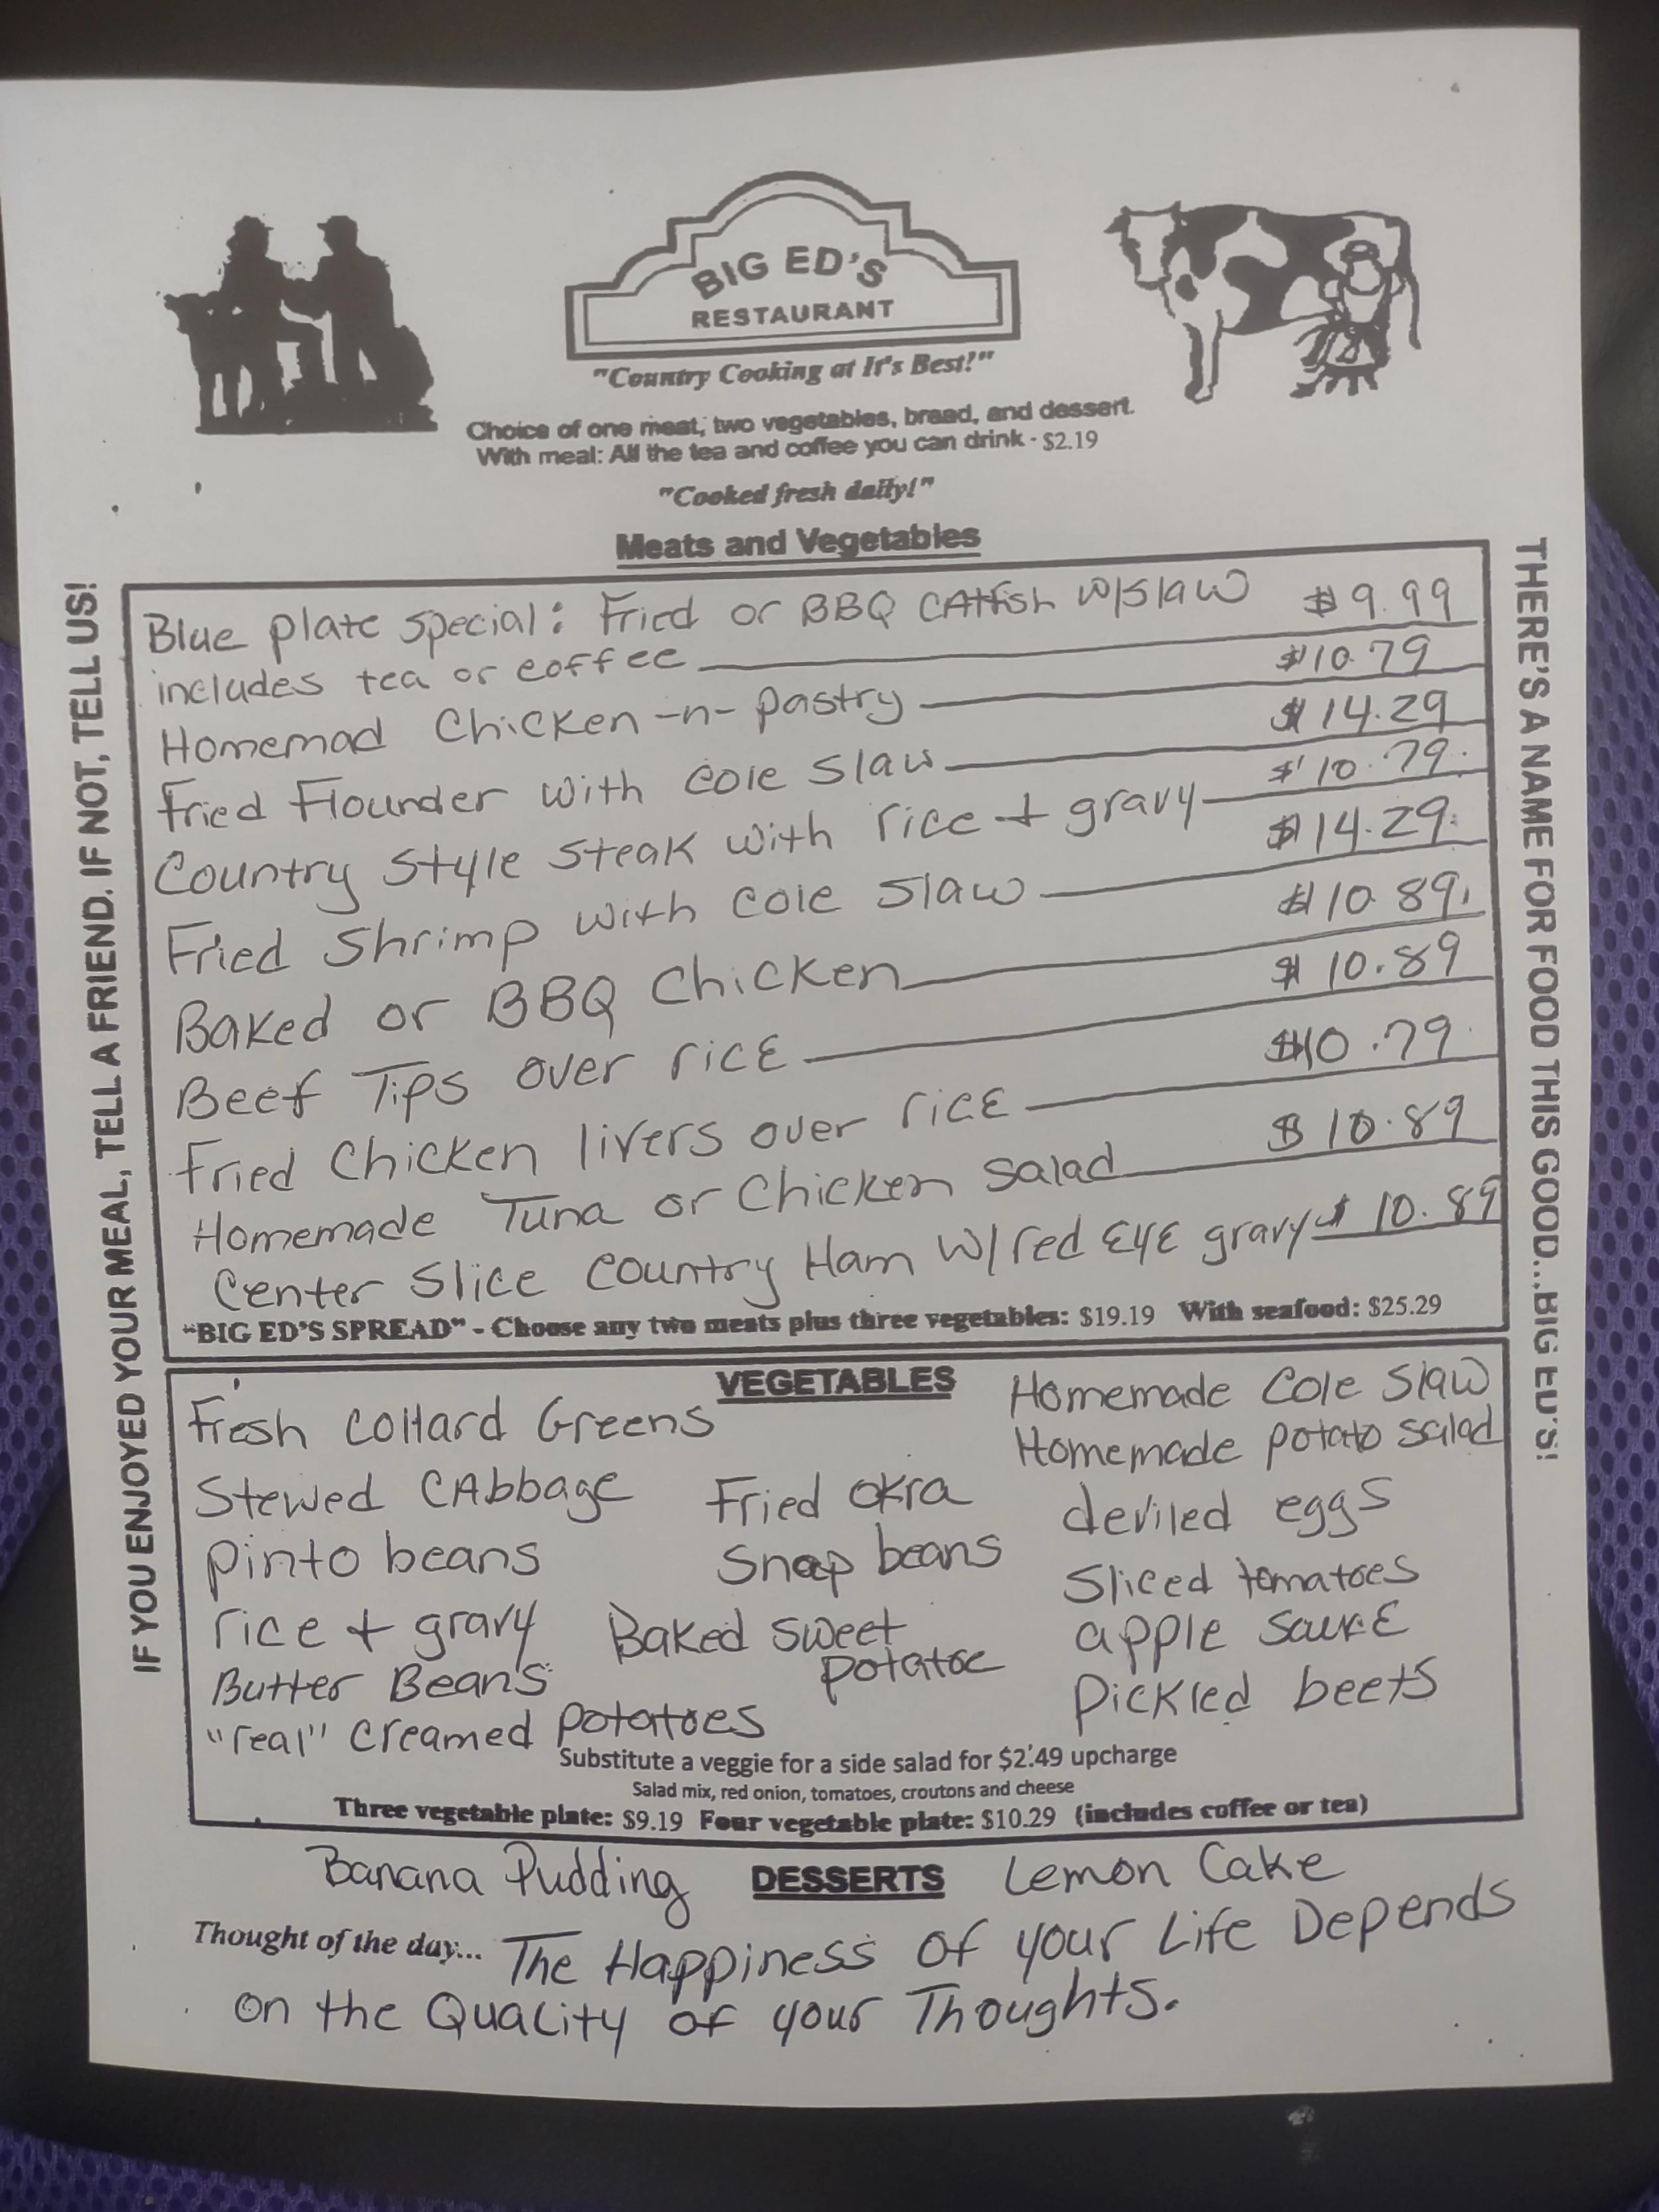 BIG ED'S
RESTAURANT
"Country Cooking at It's Best!"
Choice of one meat, two vegetables, bread, and dessert.
With meal: All the tea and coffee you can drink - $2.19
"Cooked fresh daily!"
Meats and Vegetables
Blue plate special: Fried or BBQ CAtfish w/slaw $9.99
includes tea or coffee
Homemad Chicken-n-pastry $10.79
Fried Flounder with cole slaw $14.29
Country style steak with rice + gravy $10.79
Fried Shrimp with cole slaw $14.29
Baked or BBQ Chicken $10.89
Beef Tips over rice $10.89
Fried Chicken livers over rice $10.79
Homemade Tuna or Chicken salad $10.89
Center Slice Country Ham w/red EYE gravy $10.89
"BIG ED'S SPREAD" - Choose any two meats plus three vegetables: $19.19 With seafood: $25.29
VEGETABLES
Fresh Collard Greens
Stewed CAbbage
pinto beans
rice + gravy
Butter Beans
"real" creamed potatoes
Fried okra
Snap beans
Baked sweet
potatoe
Homemade Cole Slaw
Homemade potato salad
deviled eggs
Sliced tomatoes
apple sauce
Pickled beets
Substitute a veggie for a side salad for $2.49 upcharge
Salad mix, red onion, tomatoes, croutons and cheese
Three vegetable plate: $9.19 Four vegetable plate: $10.29 (includes coffee or tea)
Banana Pudding DESSERTS Lemon Cake
Thought of the day... The Happiness of your Life Depends
on the Quality of your Thoughts.
IF YOU ENJOYED YOUR MEAL, TELL A FRIEND. IF NOT, TELL US!
THERE'S A NAME FOR FOOD THIS GOOD...BIG ED'S!